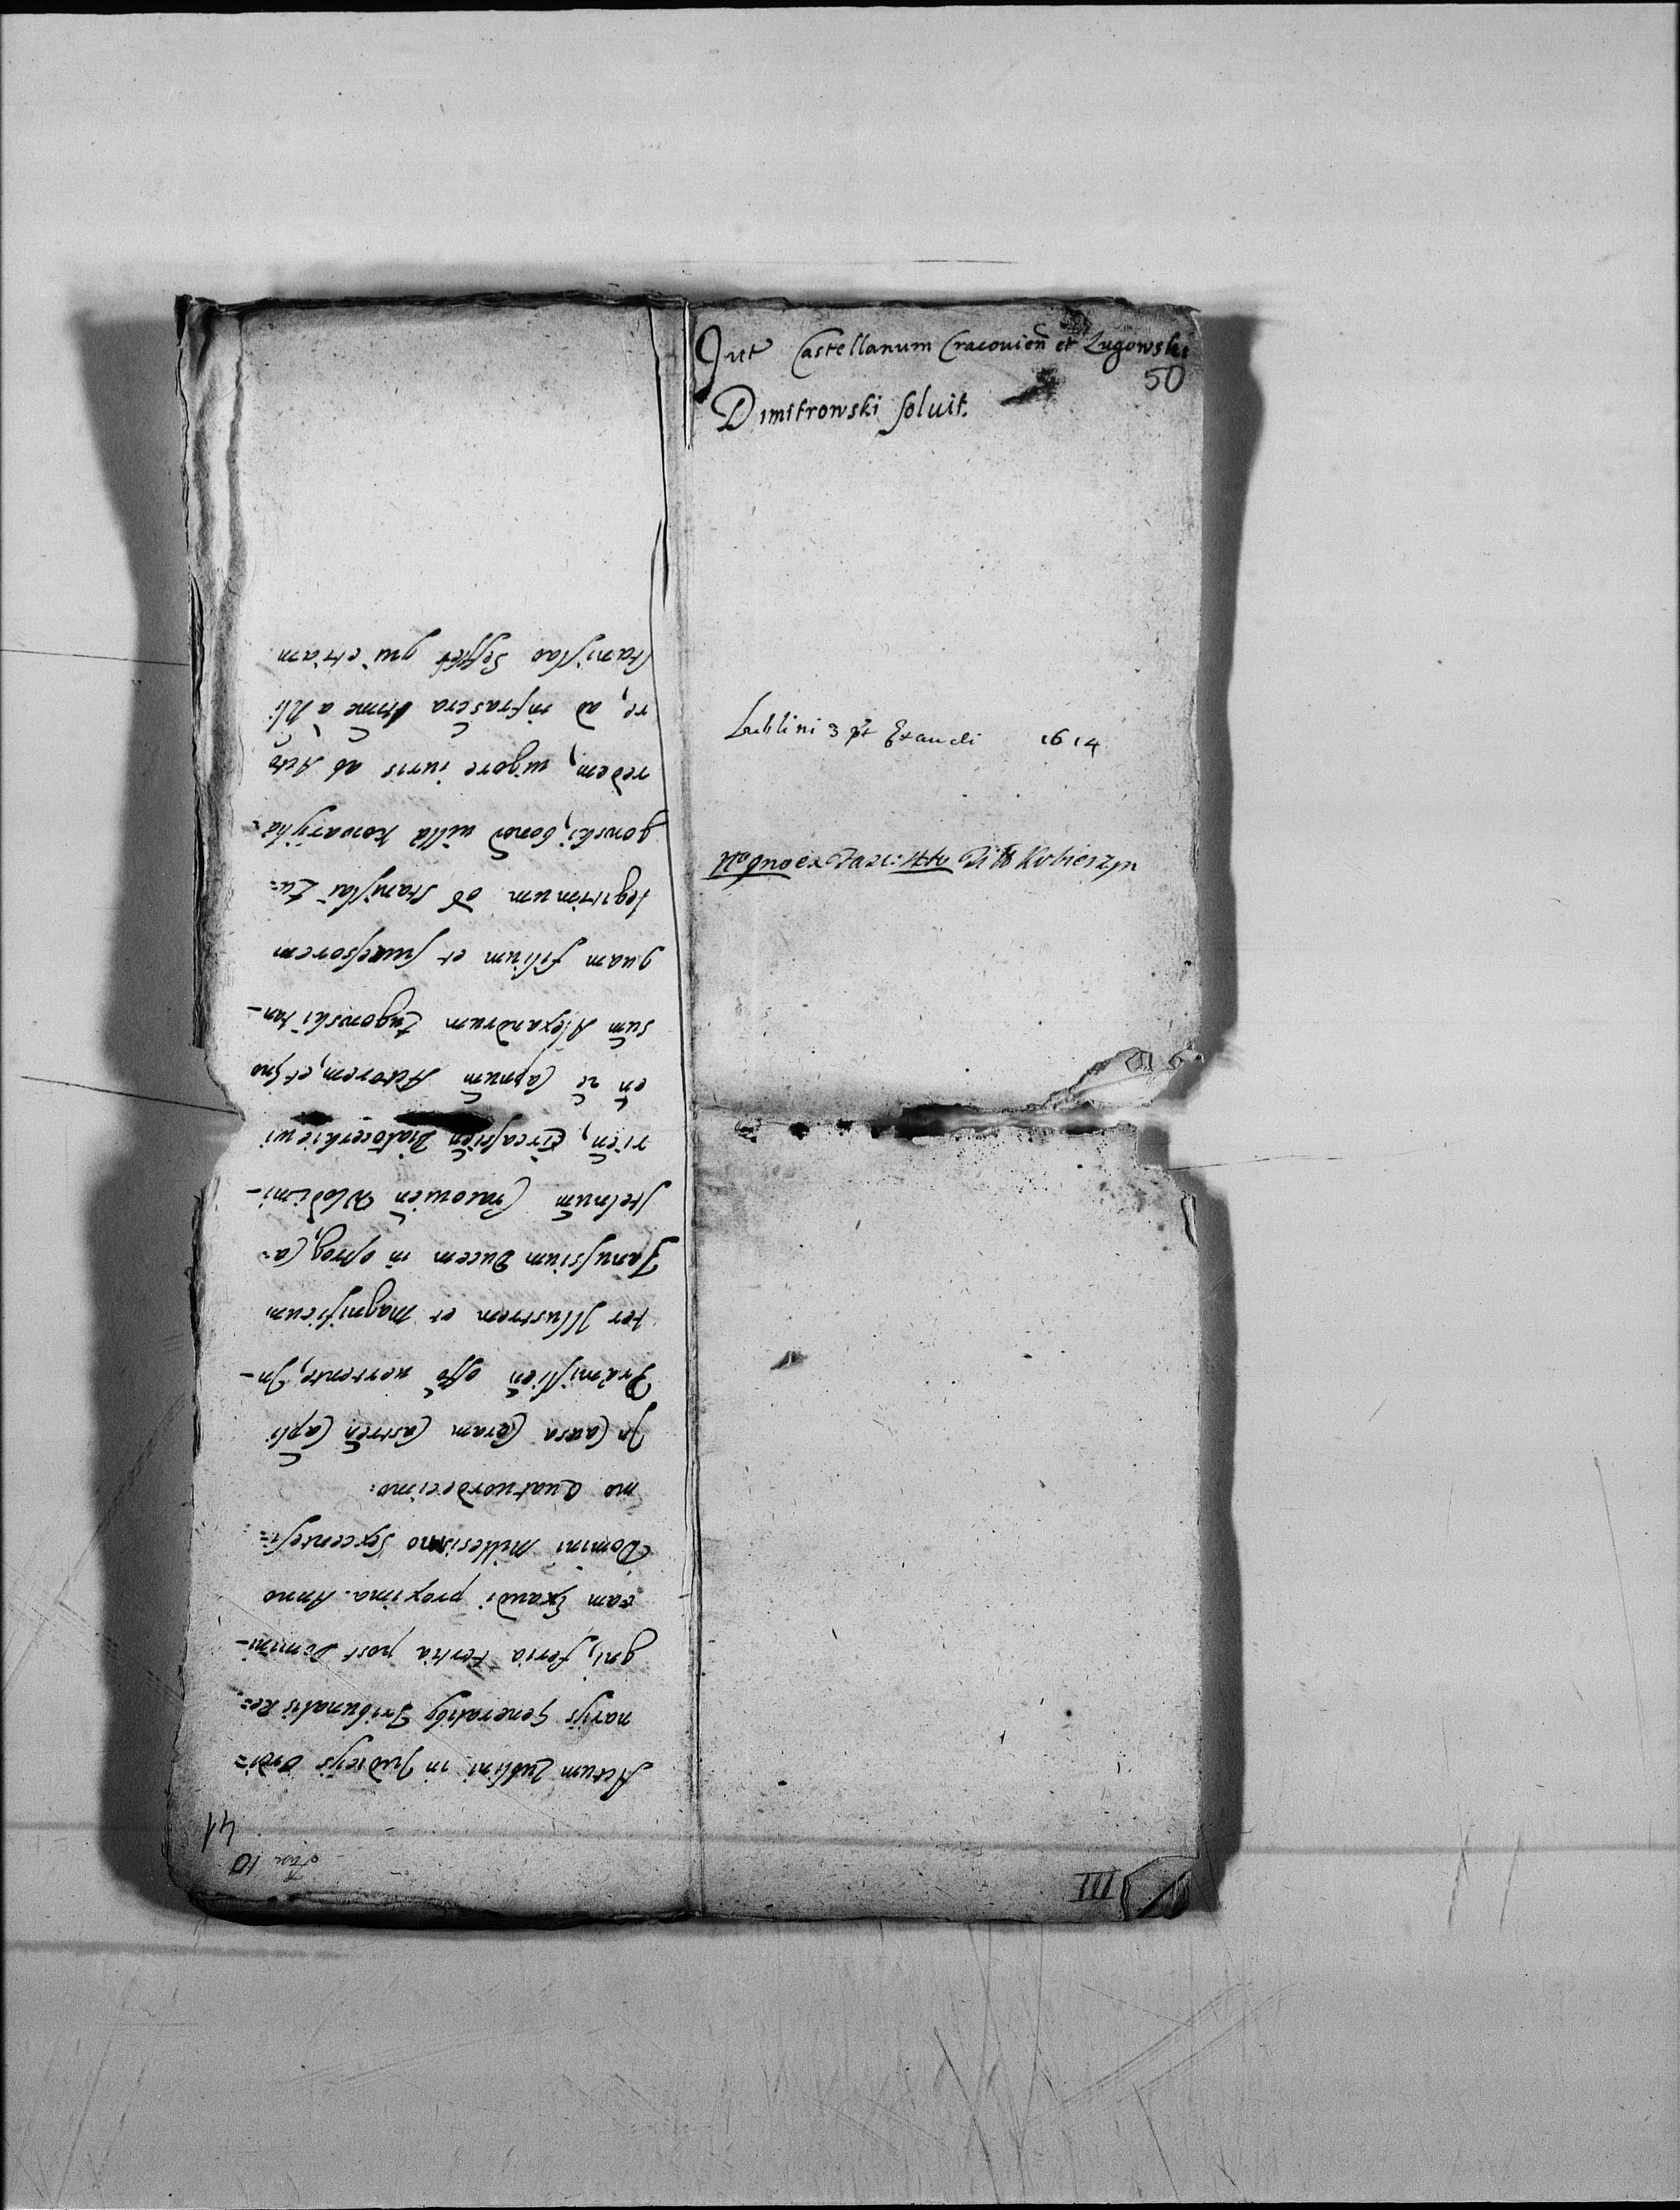 Int Castellanum Cracovien et Lugowski
50
Dimitrowski soluit.
Lublini 3 pt Exaudi 1614
III
Fasc 10
41
Actum Lublini in Judicijs Ordi=
narijs Generalibq Tribunalis Re=
gni, feria tertia post Domini-
cam Exaudi proxima. Anno
Domini Millesimo Sexcentesi=
mo Quatuordecimo:
In Causa Coram Castren Capli
Præmislien offo uertente, In-
ter Illustrem et Magnificum
Janussium Ducem in Ostrog, Ca=
stelnum Cracouien Wlodimi-
rien, Circassien Bialocerkiewi
en zc Capnum Actorem, et Gno
sum Alexandrum Lugowski tan-
quam filium et successorem
legittimum od Stanislai Lu=
gowski, bonor uilla Kowarÿka
redem, uigore iuris ab Acto
re, ad infrascra a Nli
Stanislao qui etiam